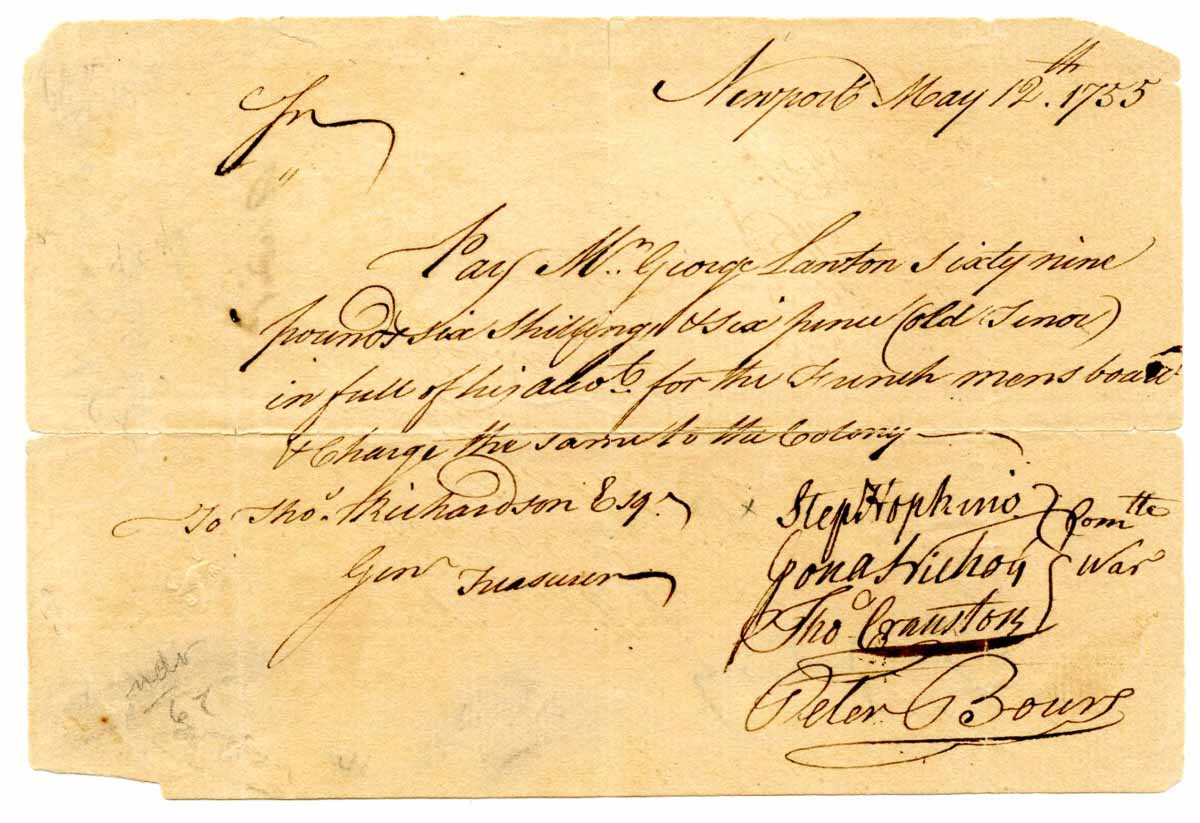 Newport May 12th. 1755
Sr
"
Pay Mr. George Lawton Sixty nine
pounds six Shillings & six pence (old Tenor)
in full of his accot. for the French mens board
& Charge the same to the Colony
To Tho. Richardson Esqr.
Genl Treasurer
x Step Hopkins
Jona Nichols
Tho Cranston
Comtte War
Peter Bours
67